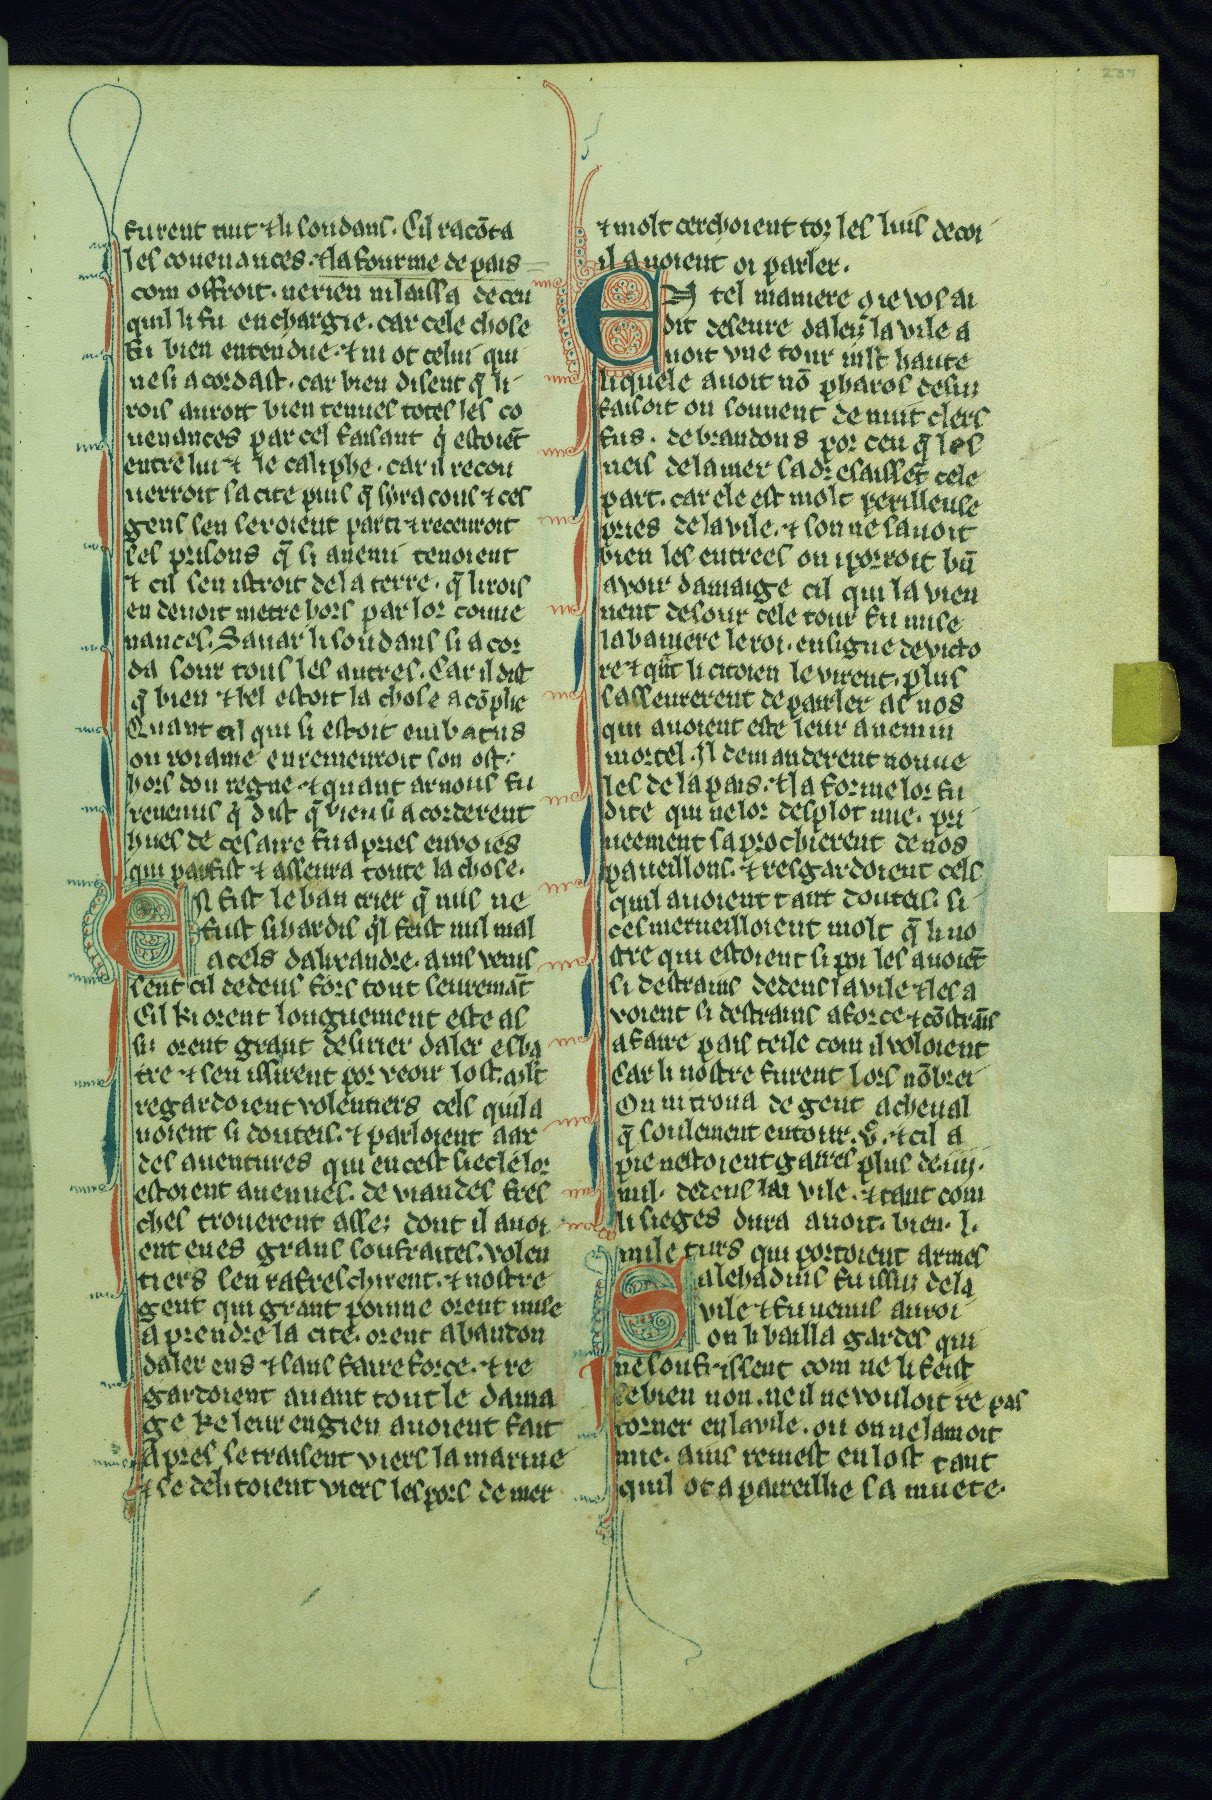 237
furent tuit ⁊ li soudans. Cil racōta
les couenances. ⁊ la fourme de pais
com offroit. ne rien ni laissa de ceu
quil li fu enchargie. car cele chose
fu bien entendue. ⁊ ni ot celui qui
ne si acordast. car bien disent q̄ li
rois auroit bien tenues totes les co
uenances par cel faisant q̄ estoiēt
entre lui ⁊ le caliphe. car il recou
uerroit sa cite puis q̄ syracons ⁊ ces
gens sen seroient parti ⁊ receuroit
ses prisons q̄ si anemi tenoient
⁊ cil sen istroit de la terre. q̄ li rois
en deuoit metre hors par lor conue
nances. Sauar li soudans si acor
da sour tous les autres. Car il dist
q̄ bien ⁊ bel estoit la chose acōplie
Quant cil qui si estoit enbatus
ou roiame enremenroit son ost.
hors dou regne. ⁊ quant arnous fu
reuenus q̄ dist q̄ bien si acorderent
hues de cesaire fu apries enuoies
qui parfist ⁊ asseura toute la chose.
En fist le ban crier q̄ nus ne
fust si hardis q̄l feist nul mal
a cels dalixandre. ains venis
sent cil dedens fors tout seuremāt
Cil ki orent longuement este as
si orent grant desirier daler esba
tre ⁊ sen issirent por veoir lost. mlt
regardoient volentiers cels quil a
uoient si douteis. ⁊ parloient aar
des auentures qui en cest siecle lor
estoient auenues. de viandes fres
ches trouerent asses dont il auoi
ent eues grans soufraites. volen
tiers sen rafreschirent. ⁊ nostre
gent qui grant poinne orent mise
a prendre la cite. orent abandon
daler ens ⁊ sans faire force. ⁊ re
gardoient auant tout le dama
ge ke leur engien auoient fait
Apres se traisent viers la marine
⁊ se delitoient viers les pors de mer
⁊ molt cerchoient toz les luis de coi
il auoient oi parler.
EN tel maniere que vos ai
dit deseure dalez la vile a
uoit vne tour mlt haute
liquele auoit nō pharos desus
faisoit on souuent de nuit clers
fus. de brandons por ceu q̄ les
neis de la mer sadresaissēt cele
part. car ele est molt perilleuse
pries de la vile. ⁊ son ne sauoit
bien les entrees on i porroit bn̄
avoir damaige cil qui la vien
nent desour cele tour fu mise
la baniere le roi. en signe de victo
re ⁊ qn̄t li citoien le virent. plus
sasseurerent de parler as nos
qui auoient este leur anemin
mortel. Il demanderent nouue
les de la pais. ⁊ la forme lor fu
dite qui ne lor desplot mie. pri
ueement saprochierent de nos
paueillons. ⁊ resgardoient cels
quil auoient tant douteis. si
ces merueilloient molt q̄ li no
stre qui estoient si poi les auoiēt
si destrains dedens la vile ⁊ les a
voient si destrains a force ⁊ cōstrāis
a faire pais teile com il voloient
Car li nostre furent lors nōbrei
On ni troua de gent a cheual
q̄ soulement entour. v. ⁊ cil a
pie nestoient gaires plus de iiij.
mil. dedens lai vile. ⁊ tant com
li sieges dura auoit. bien. l.
mile turs qui portoient armes
Salehadins fu issus de la
vile ⁊ fu venus au roi
on li bailla gardes qui
ne soufrissent com ne li feist
se bien non. ne il ne vouloit re pas
torner en la vile. ou on ne lamoit
mie. ains remest en lost tant
quil ot apareillie sa muete.